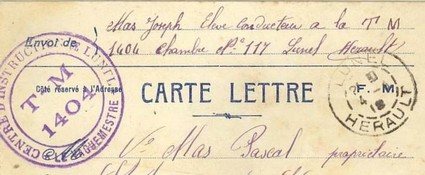 Envoi de Mas Joseph Elève conducteur a la T M
1404 Chambre N° 117 Lunel Herault
CENTRE D'INSTRUCTION LUNEL
T M
1404
VAGUEMESTRE
Côté réservé à l'Adresse
F. M.
CARTE LETTRE
LUNEL
HERAULT
Ve Mas Pascal propriétaire